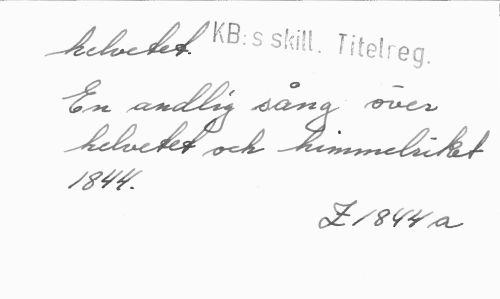 helvetet. KB:s skill. Titelreg.
En andlig sång över
helvetet och himmelriket
1844.
Z 1844 a